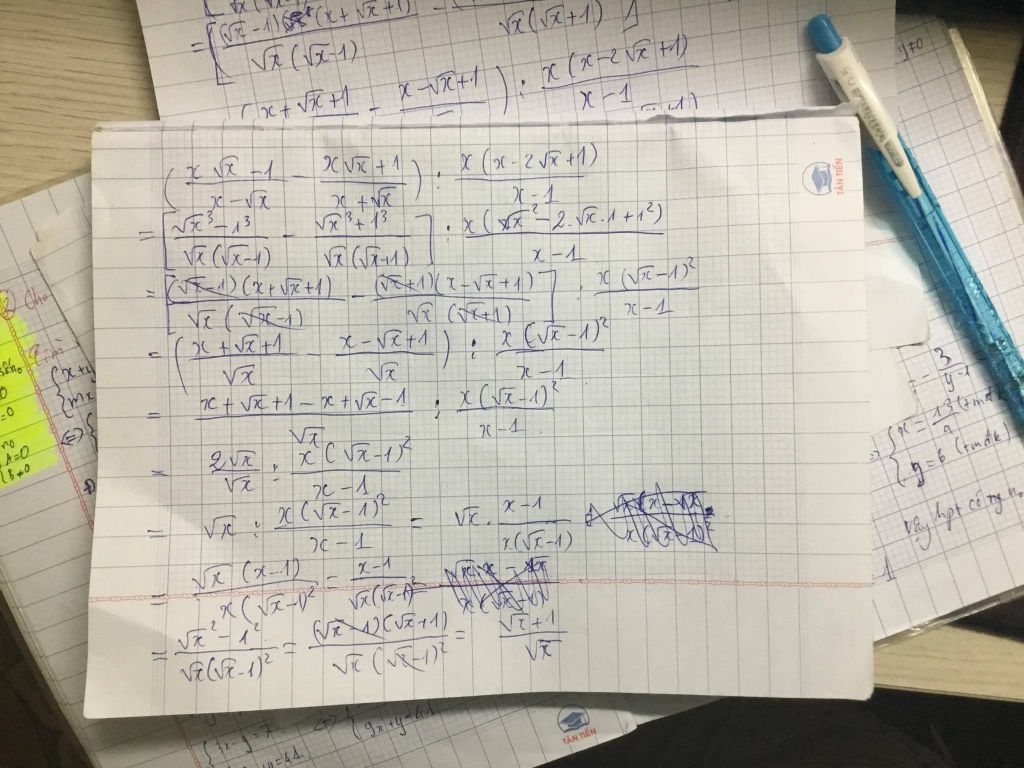 = [(√x-1)(x+√x+1)/√x(√x-1) - √x(√x+1) 1
(x+√x+1 - x-√x+1) : x(x-2√x+1)/x-1
y≠0
TÂN TIẾN
(x√x-1/x-√x - x√x+1/x+√x) : x(x-2√x+1)/x-1
= [√x³-1³/√x(√x-1) - √x³+1³/√x(√x+1)] : x(√x²-2.√x.1+1²)/x-1
= [(√x-1)(x+√x+1)/√x(√x-1) - (√x+1)(x-√x+1)/√x(√x+1)] : x(√x-1)²/x-1
= (x+√x+1/√x - x-√x+1/√x) : x(√x-1)²/x-1
= x+√x+1-x+√x-1/√x : x(√x-1)²/x-1
= 2√x/√x : x(√x-1)²/x-1
= √x : x(√x-1)²/x-1 = √x . x-1/x(√x-1)
= √x(x-1)/x(√x-1)² = x-1/√x(√x-1)²
= √x²-1²/√x(√x-1)² = (√x-1)(√x+1)/√x(√x-1)² = √x+1/√x
Cho
A=0
B≠0
= -3/y-1
y=6 (tmđk)
Vậy hpt có ng no
3x-y=7
⇔
9x+y=41
TÂN TIẾN